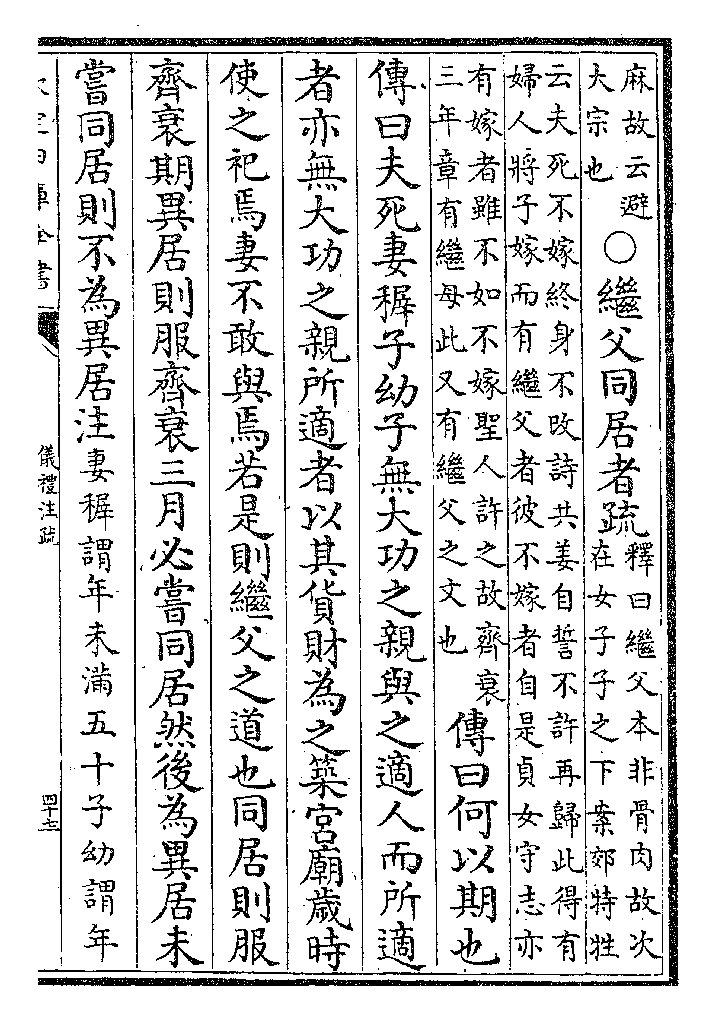 麻故云避
大宗也
○繼父同居者疏
釋曰繼父本非骨肉故次
在女子子之下案郊特牲
云夫死不嫁終身不改詩共姜自誓不許再歸此得有
婦人將子嫁而有繼父者彼不嫁者自是貞女守志亦
有嫁者雖不如不嫁聖人許之故齊衰
三年章有繼母此又有繼父之文也
傳曰何以期也
傳曰夫死妻穉子幼子無大功之親與之適人而所適
者亦無大功之親所適者以其貨財為之築宮廟歲時
使之祀焉妻不敢與焉若是則繼父之道也同居則服
齊衰期異居則服齊衰三月必嘗同居然後為異居未
嘗同居則不為異居注妻穉謂年未滿五十子幼謂年
儀禮注疏